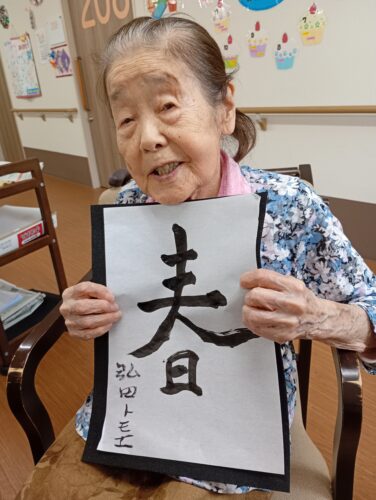 春
弘田トモエ
200